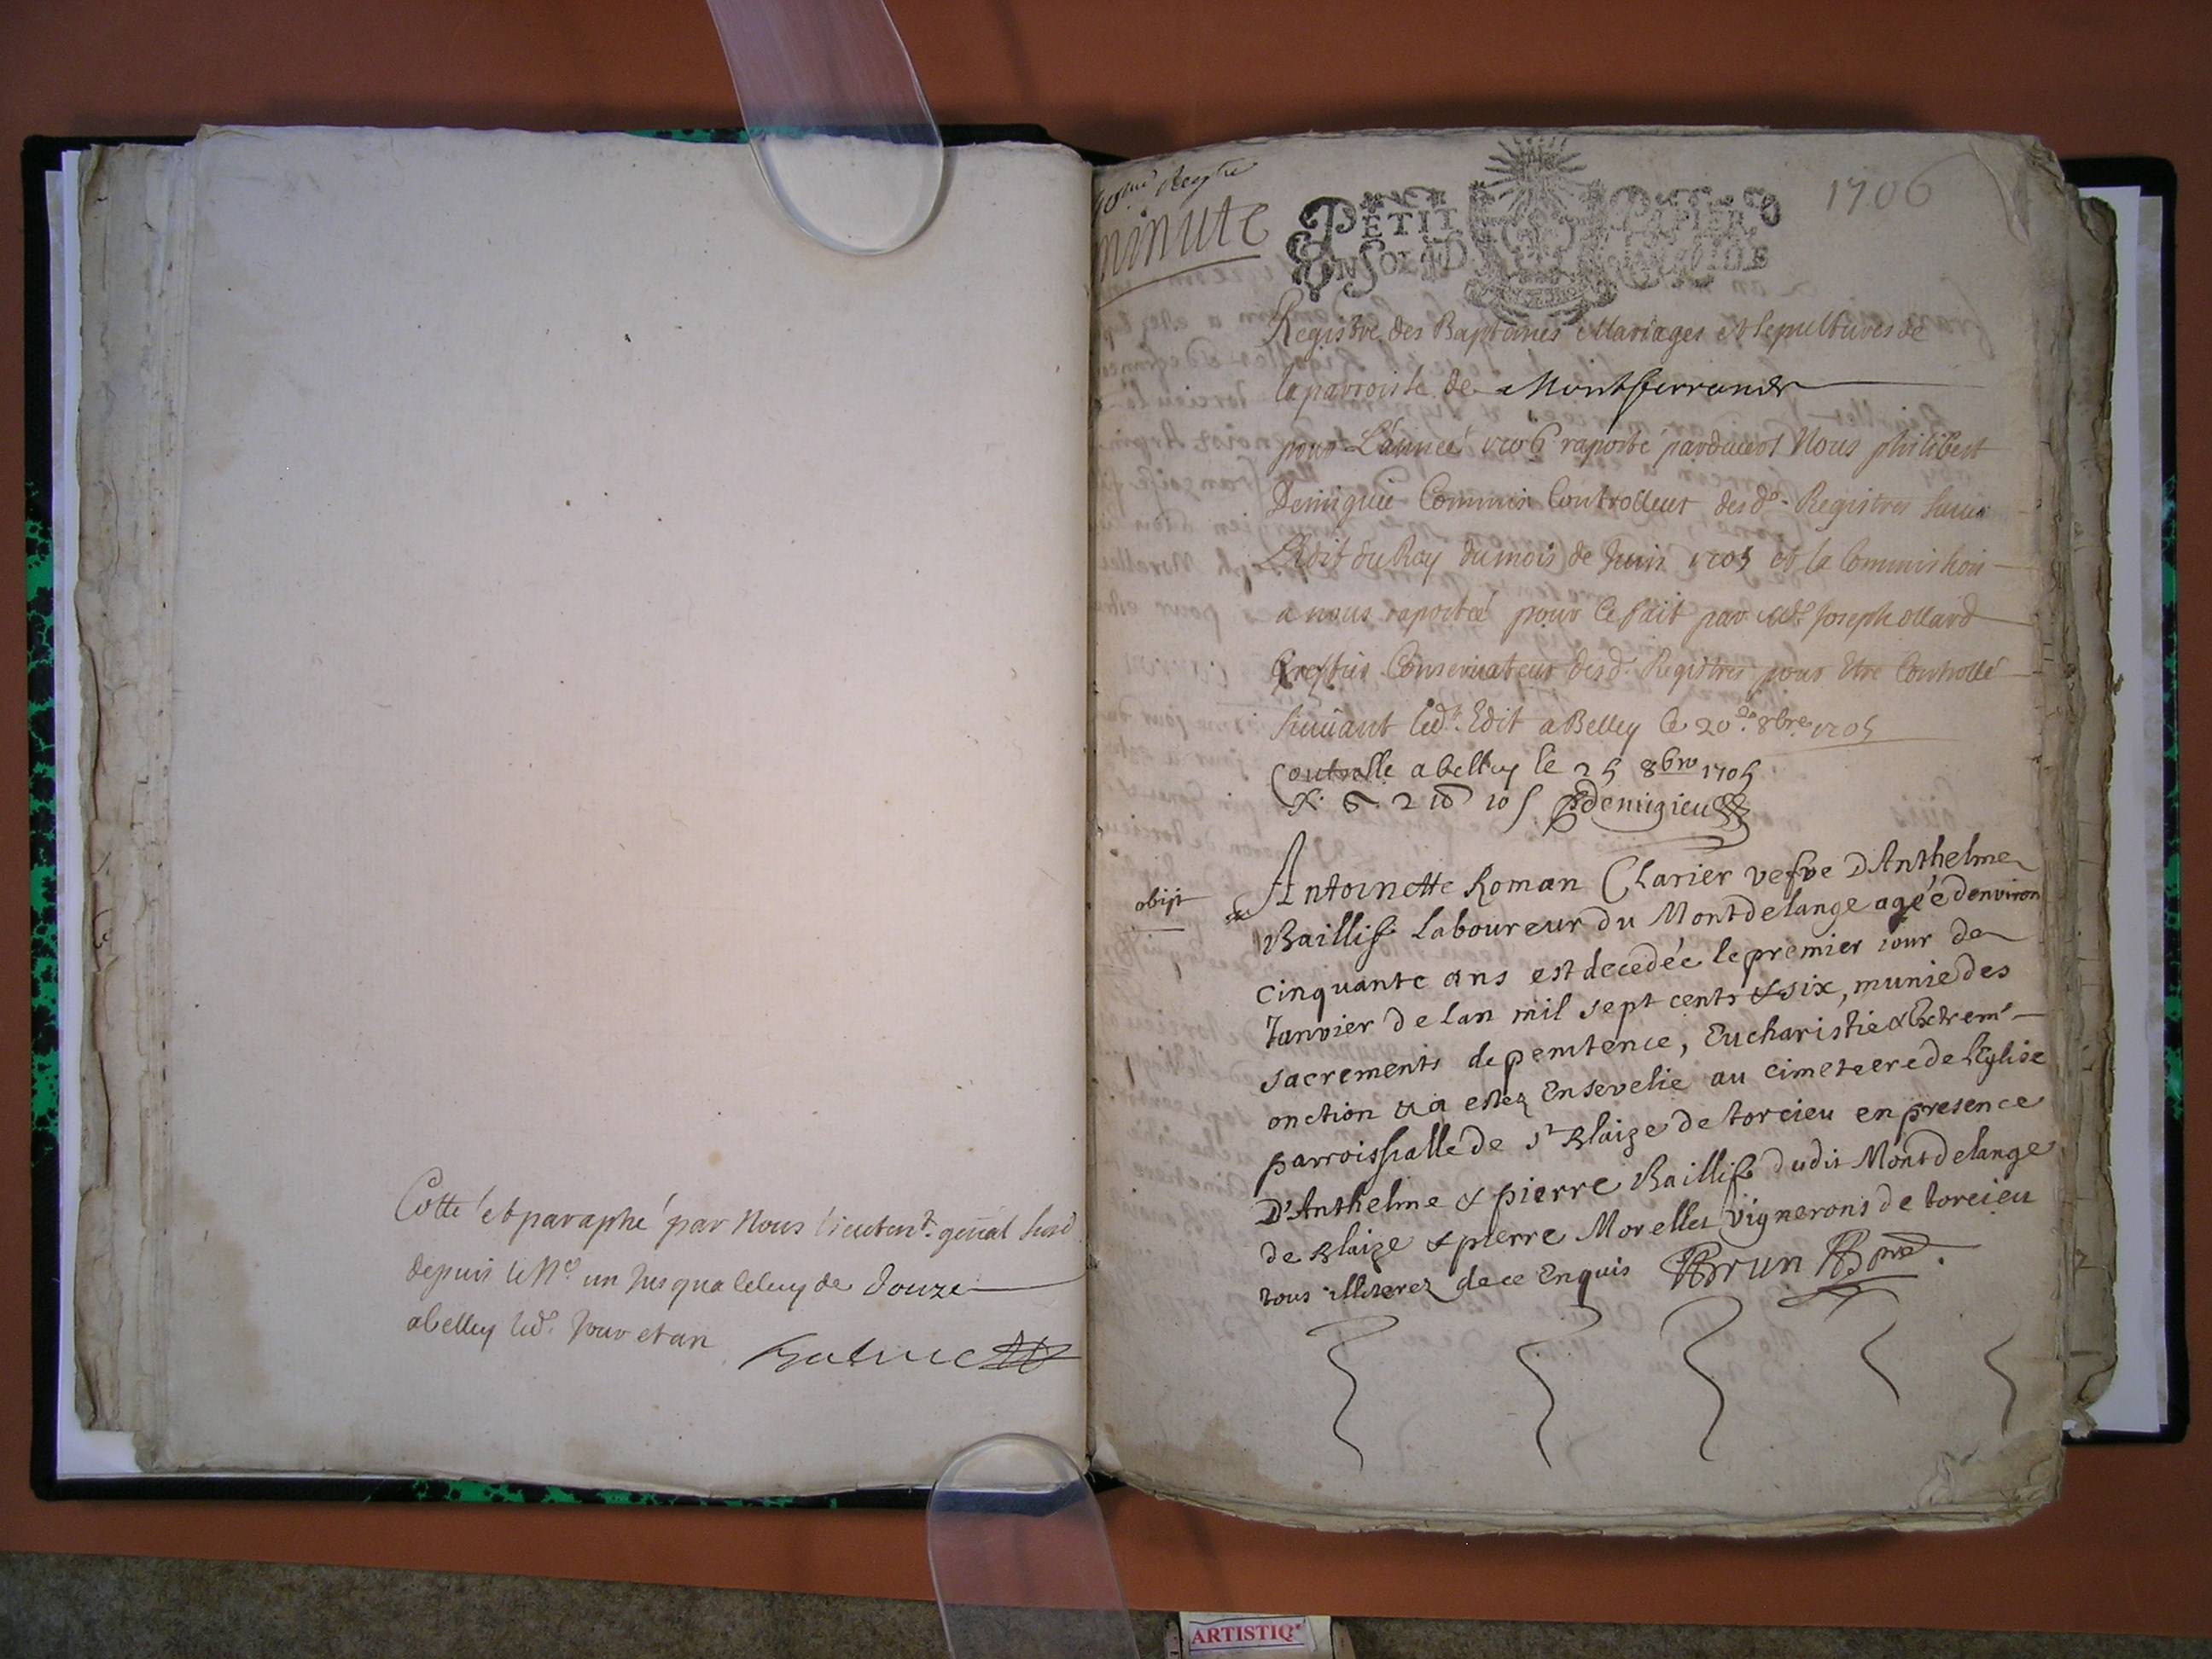 Cotté et paraphé par Nous Lieuten.t gñal susd
depuis le N.o un Jusqua celuy de douze
abelley led. Jour et an
minute
1706
PETIT PAPIER
UN SOL 4 D.
Registre des Baptemes Mariages et Sepultures de
la parroisse de Montferrand
pour L'année 1706 raporté pardevant Nous philibert
Demigieu Commis Controlleur desd. Registres suivt
L'Edit du Roy du mois de Juin 1705 et la Commission
a nous raportée pour ce fait par Me Joseph ollard
Greffier Conservateur desd. Registres pour être Controllé
suivant led.t Edit a Belley le 20.e 8bre 1705
Controlle abelley le 25 8bre 1705
R. 2 10 s pdemigieu
obijt
Antoinette Roman Charier vefve D'Anthelme
Baillif Laboureur du Montdelange agéé denviron
cinquante ans est decedée le premier iour de
Janvier de lan mil sept cents & six, munie des
sacrements de penitence, Eucharistie & Extrem'
onction & a estez Ensevelie au cimetiere de l'Eglise
parroissialle de St Blaize de torcieu en presence
D'Anthelme & pierre Baillif dudit Montdelange
de Blaize & pierre Morellet vignerons de torcieu
tous illiterez de ce Enquis Brun pre.
ARTISTIQ